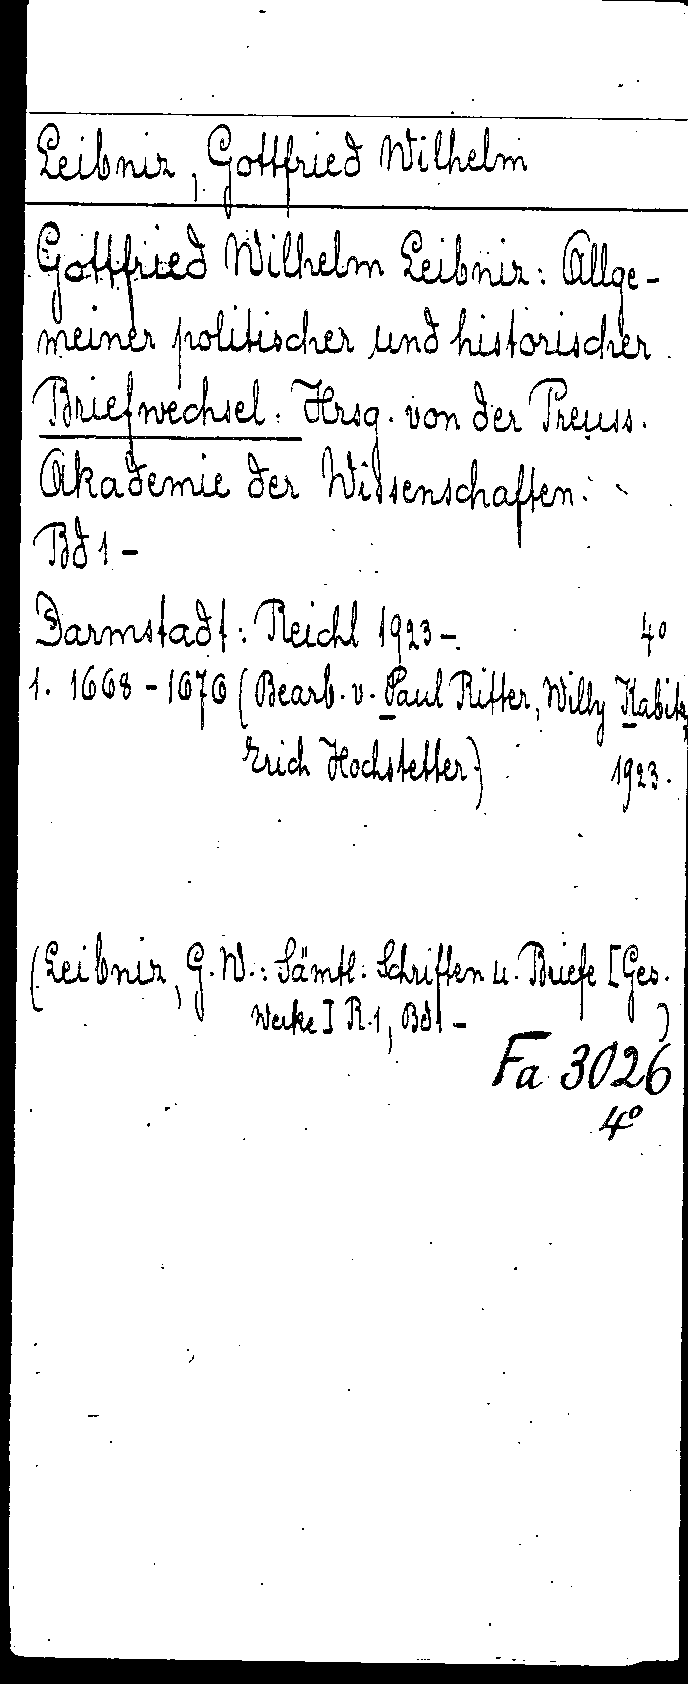 Leibniz, Gottfried Wilhelm
Gottfried Wilhelm Leibniz: Allge-
meiner politischer und historischer
Briefwechsel. Hrsg. von der Preuss.
Akademie der Wissenschaften.
Bd 1 -
Darmstadt: Reichl 1923 -. 4°
1. 1668 - 1676 (Bearb. v. Paul Ritter, Willy Kabitz,
Erich Hochstetter) 1923.
(Leibniz, G. W.: Sämtl. Schriften u. Briefe [Ges.
Werke] R. 1, Bd 1 - )
Fa 3026
4°